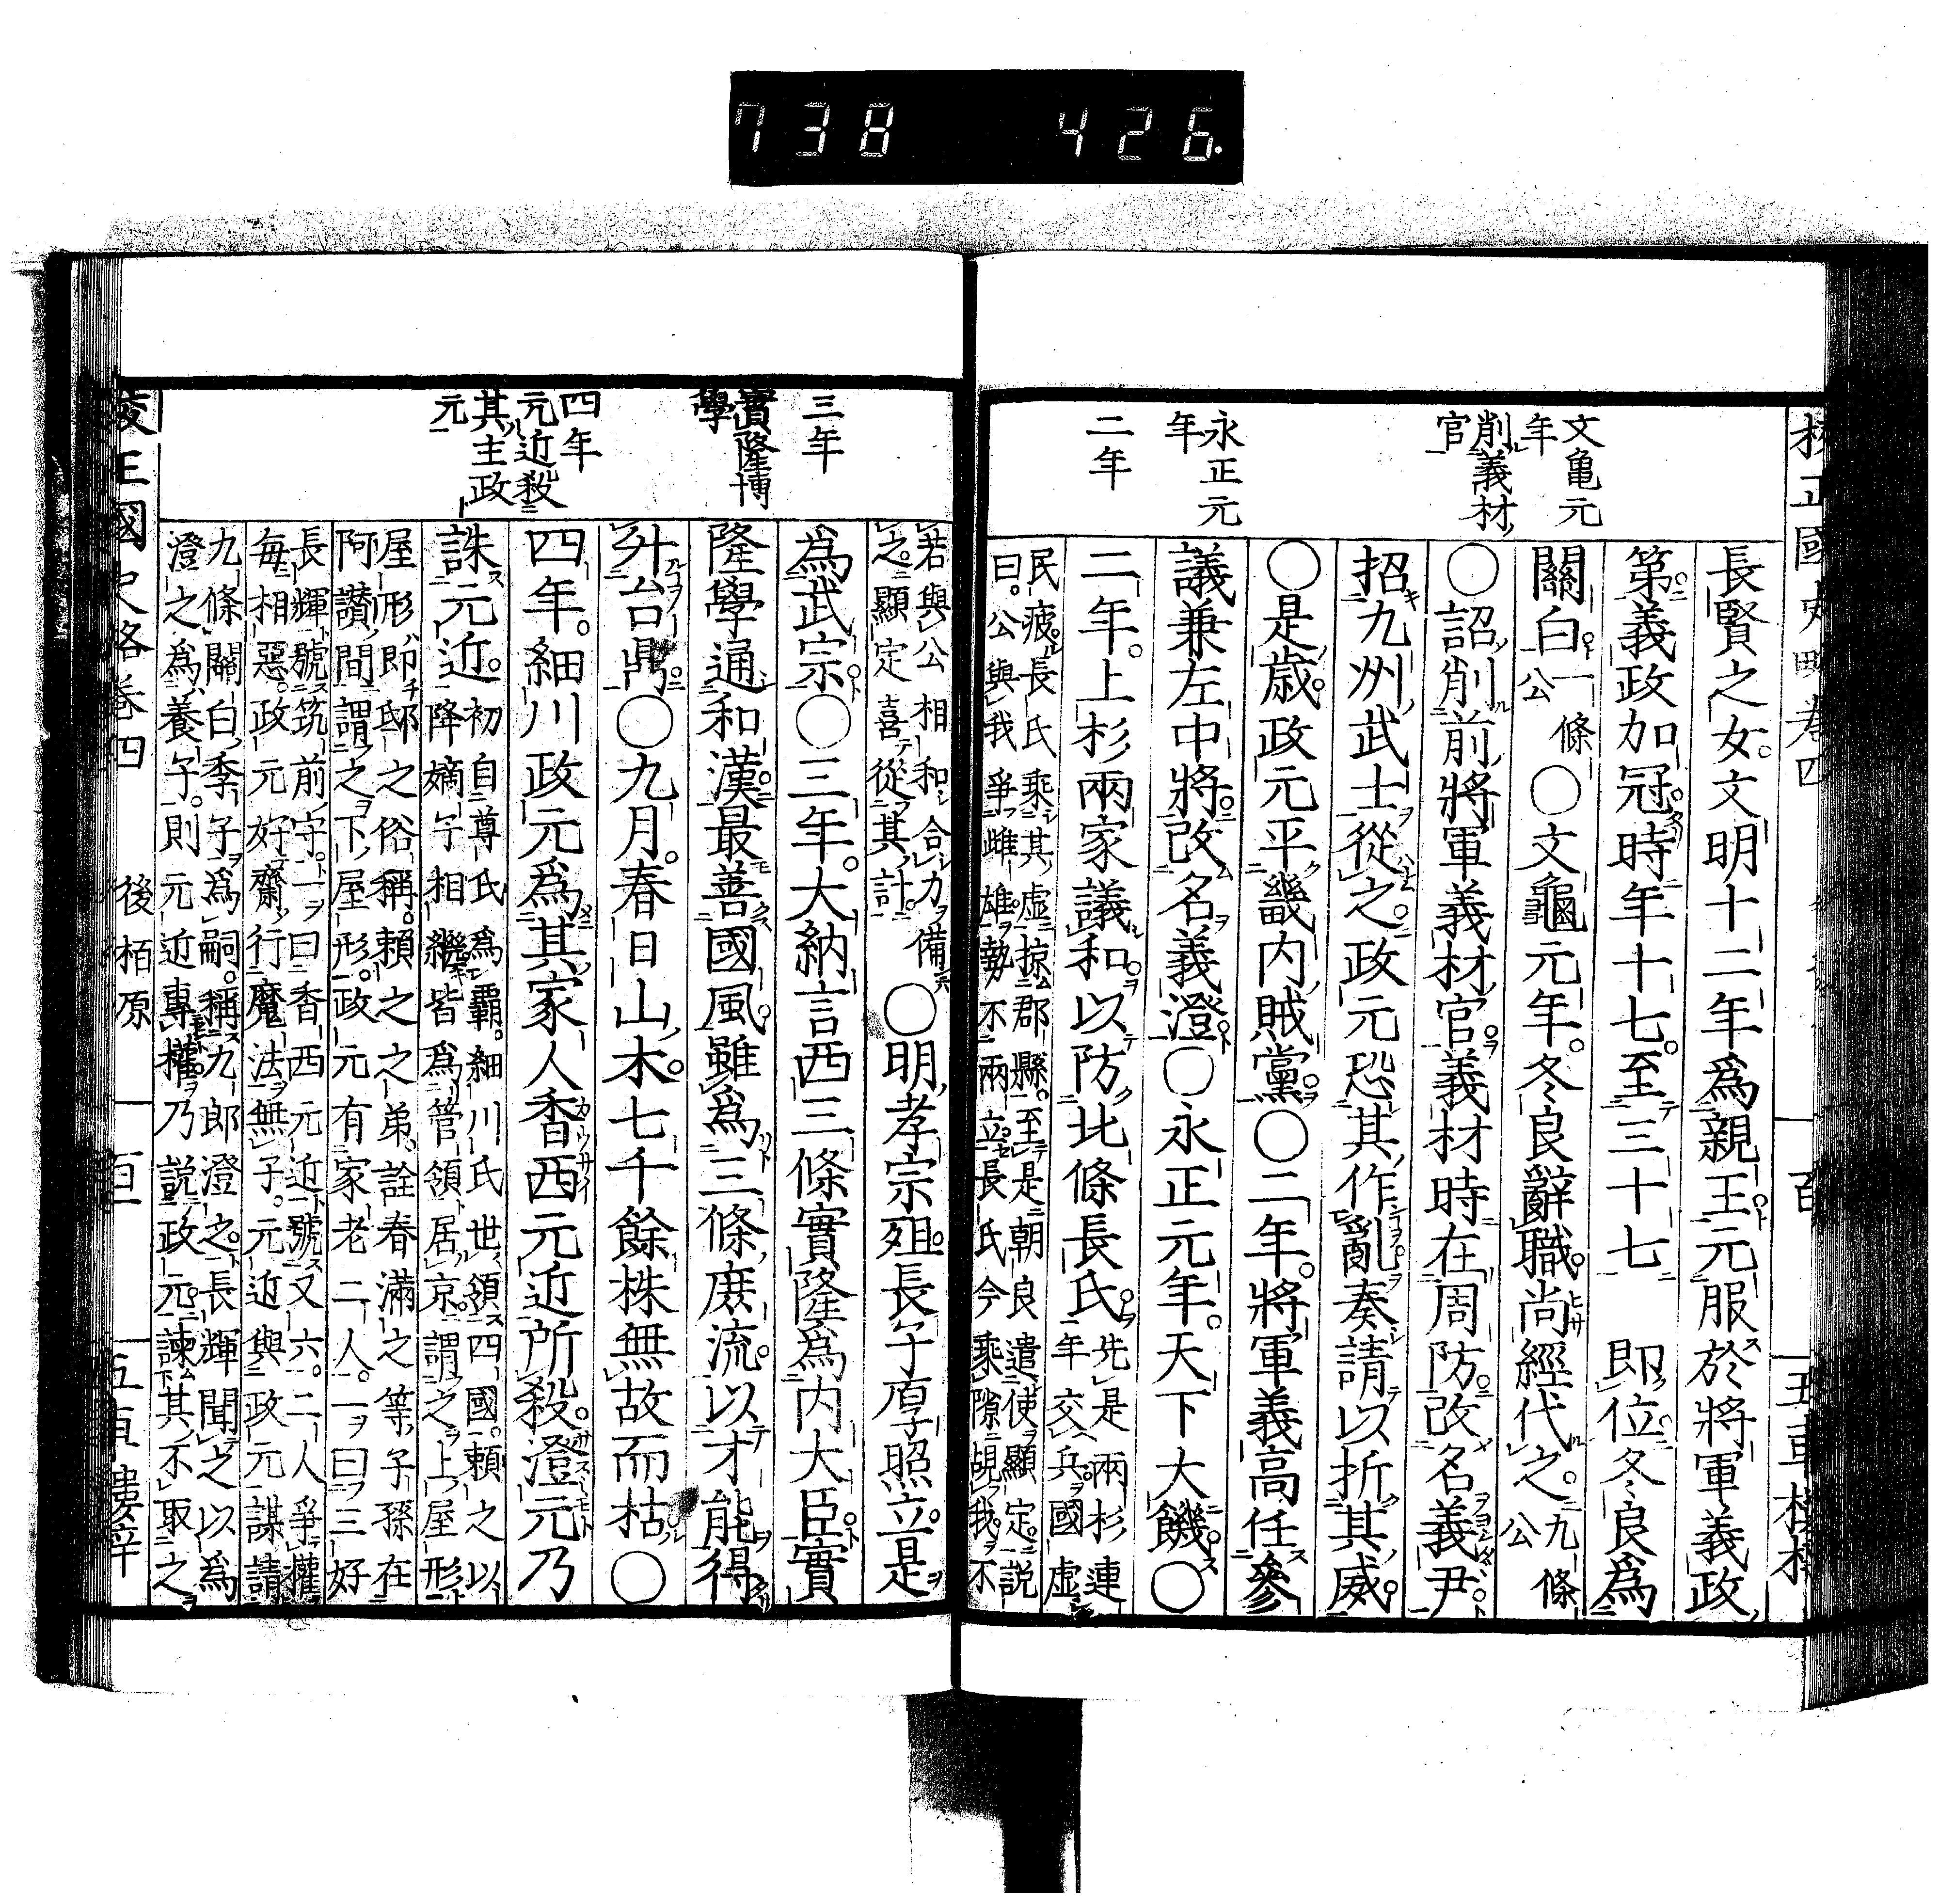 738 426.
校正國史畧卷四
百
文亀元年
削義材官
永正元年
二年
長賢之女。文明十二年爲親王。元服於將軍義政
第。義政加冠。時年十七。至三十七 即位。冬良爲
關白。一條公〇文龜元年。冬良辭職。尚經代之。九條公
〇詔削前將軍義材官。義材時在周防。改名義尹
招九州武士從之。政元恐其作亂。奏請以折其威。
〇是歳。政元平畿内賊黨。〇二年。將軍義高任參
議兼左中將。改名義澄。〇永正元年。天下大饑。〇
二年。上杉兩家議和。以防北條長氏。先是兩杉連年交兵。國虛
民疲。長氏乘其虛。掠郡縣。至是朝良遣使顯定説
曰。公與我爭雌雄。勢不兩立。長氏今乘隙覘我。不
三年
實隆博學
四年
元近殺其主政元
若與公相和合力備之。顯定喜從其計。〇明孝宗殂。長子厚照立。是
爲武宗。〇三年。大納言西三條實隆爲内大臣。實
隆學通和漢。最善國風。雖爲三條庶流。以才能得
升台鼎。〇九月。春日山木。七千餘株無故而枯。〇
四年。細川政元爲其家人香西元近所殺。澄元乃
誅元近。初自尊氏爲覇。細川氏世領四國。頼之以
降嫡子相繼。皆爲管領。居京。謂之上屋形。
屋形。即邸之俗稱。頼之之弟。詮春滿之等。子孫在
阿讃間。謂之下屋形。政元有家老二人。一曰三好
長輝。號筑前守。一曰香西元近。號又六。二人爭權
毎相惡。政元好齋。行魔法。無子。元近與政元謀請
九條關白季子爲嗣。稱九郎澄之。長輝聞之以爲
澄之爲養子。則元近專權。乃説政元。諫其不取之
校正國史畧卷四 後栢原 百一 五車樓梓